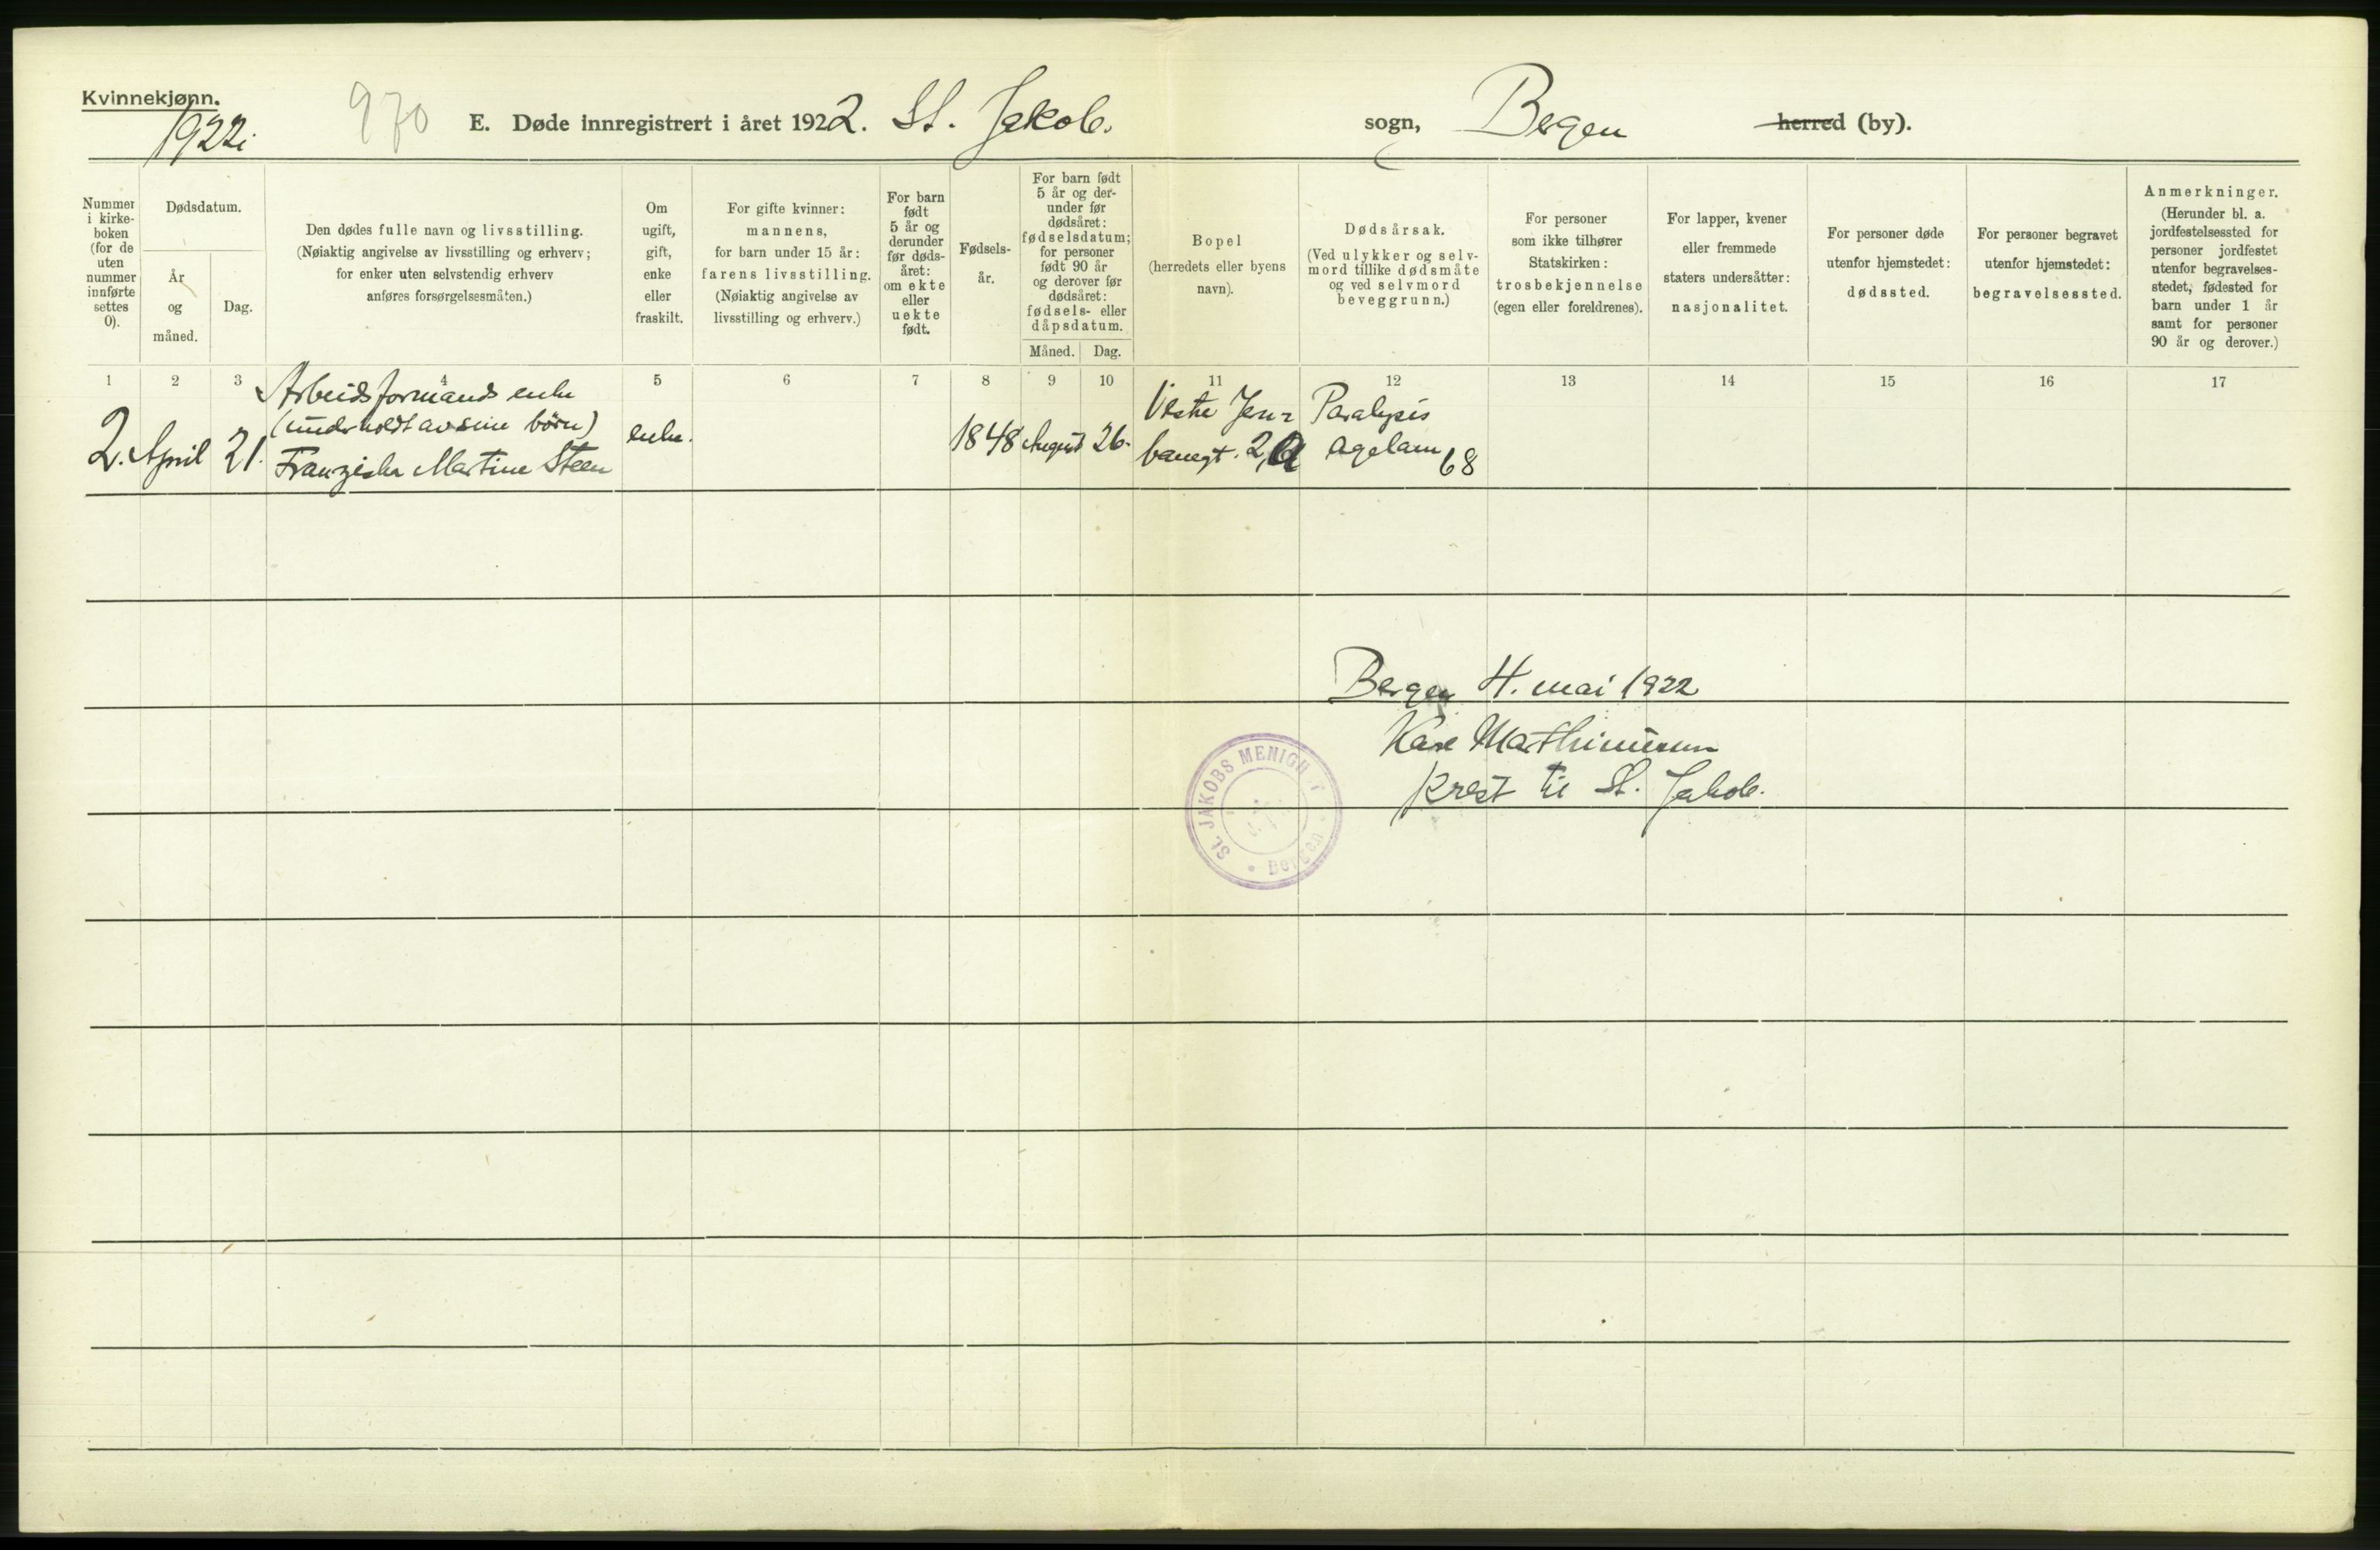 Kvinnekjønn.
1922.
970
E. Døde innregistrert i året 1922. St. Jakob. sogn, Bergen herred (by).
Nummer i kirke- boken (for de uten nummer innførte settes 0).
Dødsdatum.
År og måned.
Dag.
Den dødes fulle navn og livsstilling.
(Nøiaktig angivelse av livsstilling og erhverv;
for enker uten selvstendig erhverv
anføres forsørgelsesmåten.)
Om ugift, gift, enke eller fraskilt.
For gifte kvinner:
mannens,
for barn under 15 år:
farens livsstilling.
(Nøiaktig angivelse av
livsstilling og erhverv.)
For barn født 5 år og derunder før døds- året: om ekte eller uekte født.
Fødsels- år.
For barn født
5 år og der-
under før
dødsåret:
fødselsdatum;
for personer
født 90 år
og derover før
dødsåret:
fødsels- eller
dåpsdatum.
Måned. Dag.
Bopel
(herredets eller byens
navn).
Dødsårsak.
(Ved ulykker og selv-
mord tillike dødsmåte
og ved selvmord
beveggrunn.)
For personer
som ikke tilhører
Statskirken:
trosbekjennelse
(egen eller foreldrenes).
For lapper, kvener
eller fremmede
staters undersåtter:
nasjonalitet.
For personer døde
utenfor hjemstedet:
dødssted.
For personer begravet
utenfor hjemstedet:
begravelsessted.
Anmerkninger.
(Herunder bl. a.
jordfestelsessted for
personer jordfestet
utenfor begravelses-
stedet, fødested for
barn under 1 år
samt for personer
90 år og derover.)
1 2 3 4 5 6 7 8 9 10 11 12 13 14 15 16 17
Arbeidsformands enke
(underholdt av sine börn)
2. April 21. Franziska Martine Steen enke. 1848 August 26.
Vestre Jern-
banegt. 2,
Paralysis
agelam 68
Bergen 4. mai 1922
Kåre
Prest til St. Jakob.
St. JAKOBS MENIGH T
Bergen